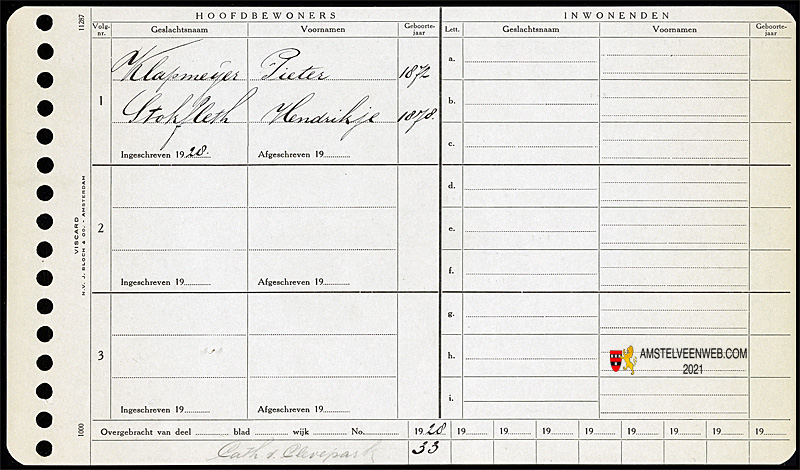 11287
HOOFDBEWONERS
INWONENDEN
Volg-nr.
Geslachtsnaam
Voornamen
Geboorte-jaar
Lett.
Geslachtsnaam
Voornamen
Geboorte-jaar
1
Klapmeijer Pieter 1872
Stokfleth Hendrikje 1878.
Ingeschreven 1928.
Afgeschreven 19
a.
b.
c.
2
Ingeschreven 19
Afgeschreven 19
d.
e.
f.
3
Ingeschreven 19
Afgeschreven 19
g.
h.
i.
AMSTELVEENWEB.COM
2021
VISCARD
N.V. J. BLOCH & CO. - AMSTERDAM
1000
Overgebracht van deel blad wijk No. 1928 19 19 19 19 19 19 19 19
Cath v. Clevepark 33